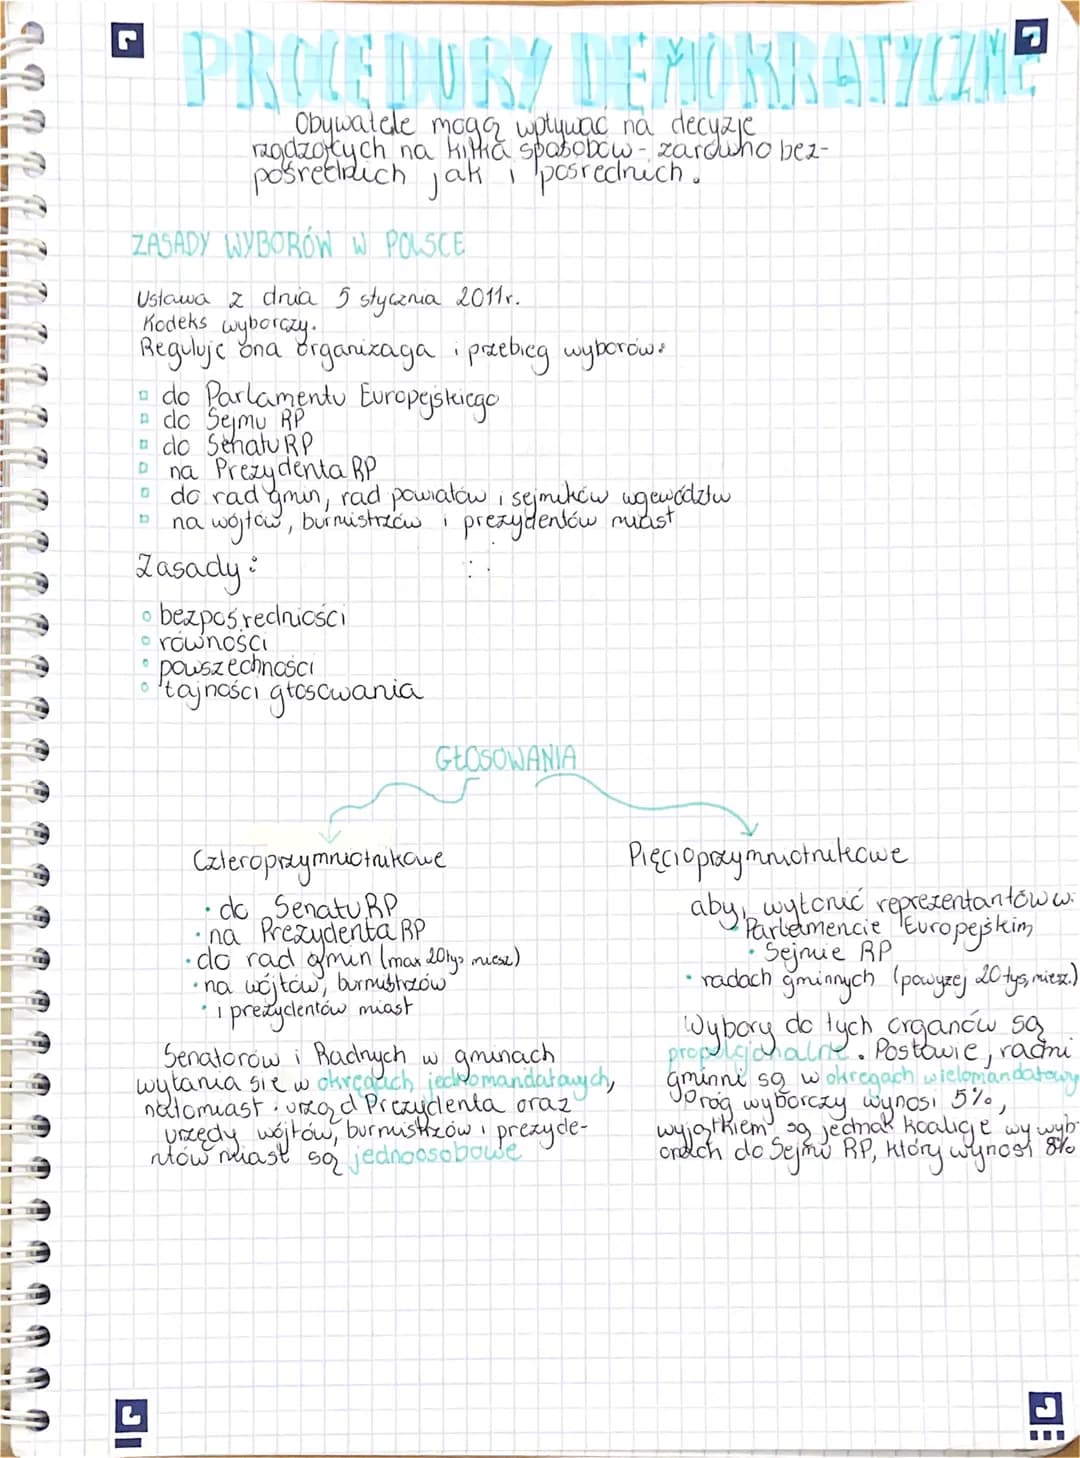 PROCEDURY DEMOKRATYCZNE
Obywatele mogą wpływać na decyzje
rządzących na kilka sposobów - zarówno bez-
pośrednich jak i pośrednich.
ZASADY WYBORÓW W POLSCE
Ustawa z dnia 5 stycznia 2011r.
Kodeks wyborczy.
Reguluje ona organizaga i przebieg wyborów:
do Parlamentu Europejskiego
do Sejmu RP
do Senatu RP
na Prezydenta RP
do rad gmin, rad powiatów i sejmików województw
na wójtów, burmistrzów i prezydentów miast
Zasady:
bezpośredniości
równości
powszechności
tajności głosowania
GŁOSOWANIA
Czteroprzymiotnikowe
• do Senatu RP
• na Prezydenta RP
• do rad gmin (max 20tys miesz)
• na wójtów, burmistrzów
• i prezydentów miast
Senatorów i Radnych w gminach
wyłania się w okręgach jednomandatowych,
natomiast urząd Prezydenta oraz
urzędy wójtów, burmistrzów i prezyde-
ntów miast są jednoosobowe
Pięcioprzymiotnikowe
aby, wyłonić reprezentantów w:
• Parlamencie Europejskim,
• Sejmie RP
• radach gminnych (powyżej 20 tys, miesz.)
Wybory do tych organów są
proporcjonalne. Posłowie, radni
gminni są w okręgach wielomandatowy
Próg wyborczy wynosi 5%,
wyjątkiem są jednak koalicje wy wyb-
orach do Sejmu RP, który wynosi 8%